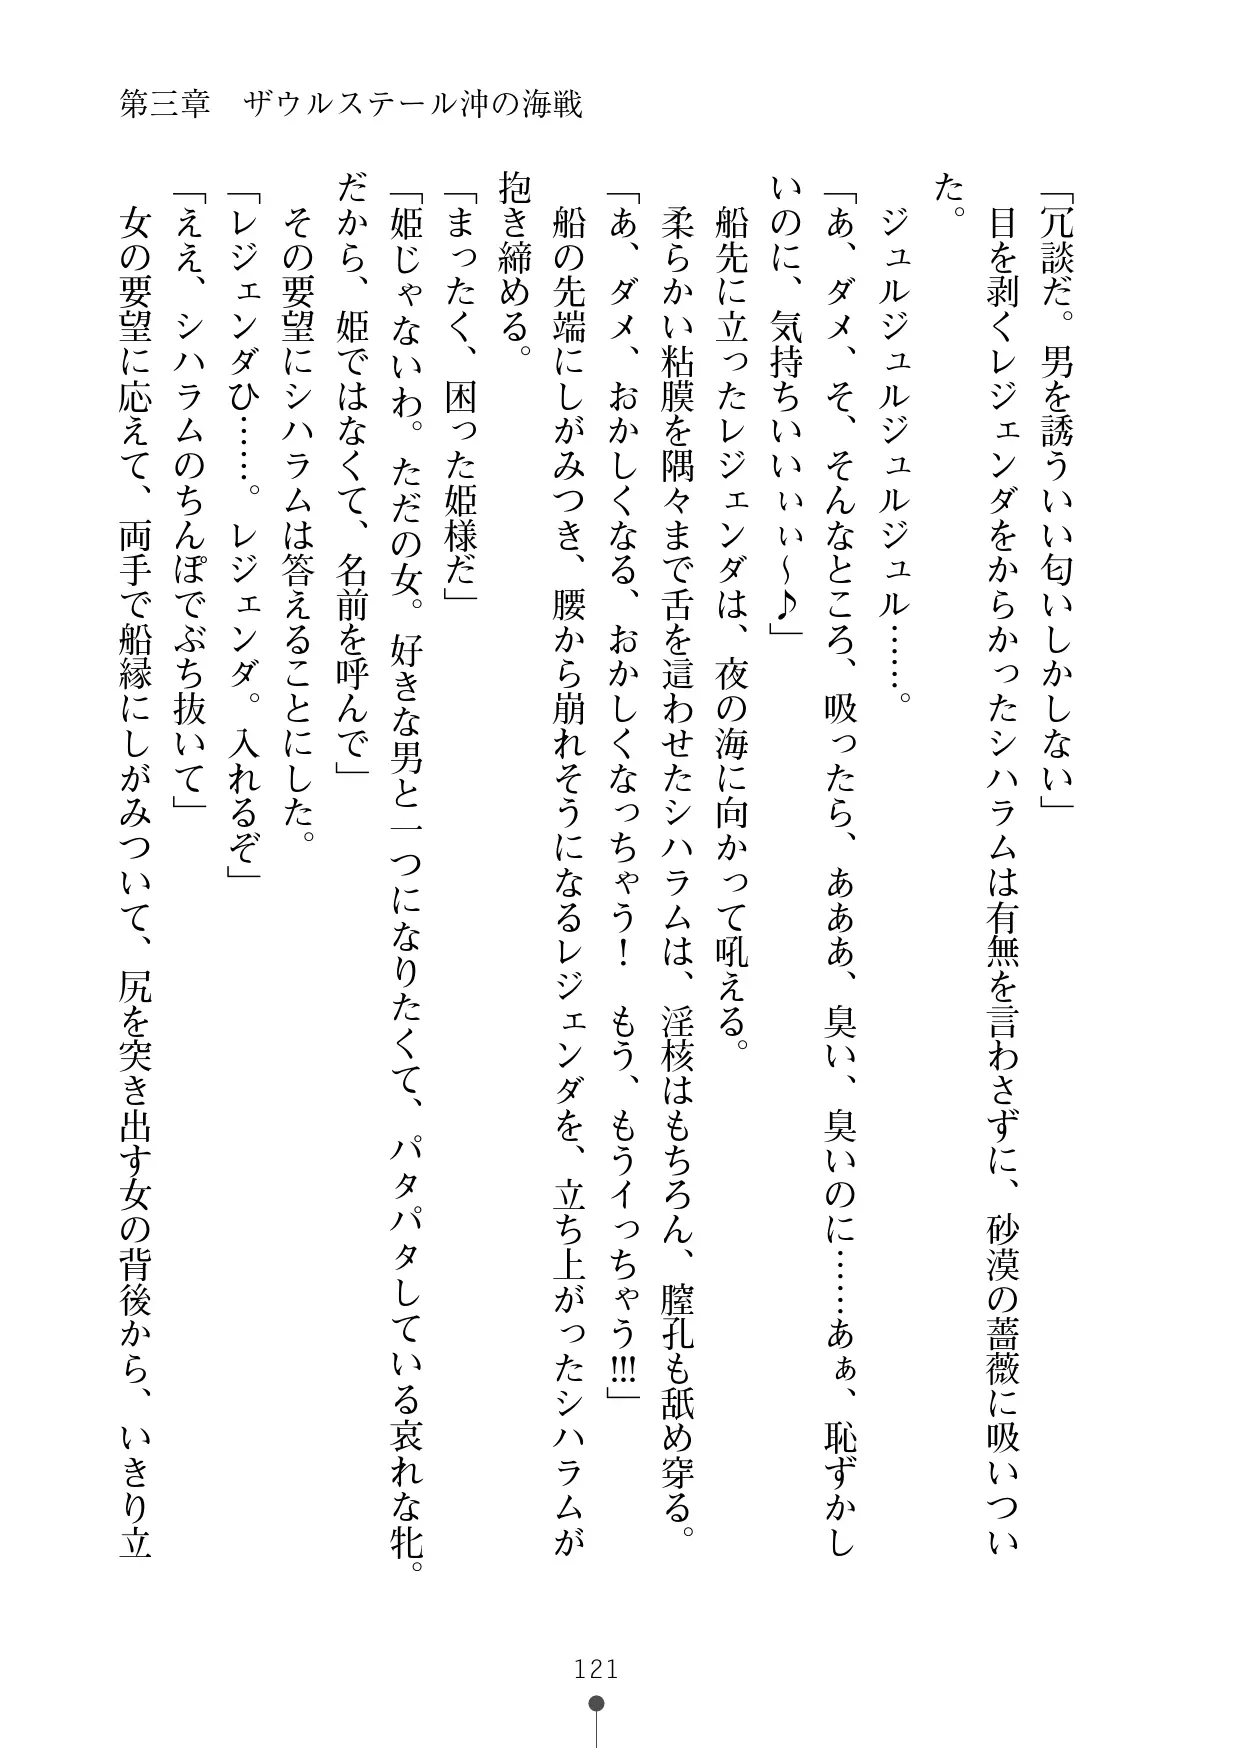 第三章　ザウルステール沖の海戦
「冗談だ。男を誘ういい匂いしかしない」
　目を剥くレジェンダをからかったシハラムは有無を言わさずに、砂漠の薔薇に吸いつい
た。
　ジュルジュルジュルジュル……。
「あ、ダメ、そ、そんなところ、吸ったら、あああ、臭い、臭いのに……あぁ、恥ずかし
いのに、気持ちいいぃぃ～♪」
　船先に立ったレジェンダは、夜の海に向かって吼える。
　柔らかい粘膜を隅々まで舌を這わせたシハラムは、淫核はもちろん、膣孔も舐め穿る。
「あ、ダメ、おかしくなる、おかしくなっちゃう！　もう、もうイっちゃう!!!」
　船の先端にしがみつき、腰から崩れそうになるレジェンダを、立ち上がったシハラムが
抱き締める。
「まったく、困った姫様だ」
「姫じゃないわ。ただの女。好きな男と一つになりたくて、パタパタしている哀れな牝。
だから、姫ではなくて、名前を呼んで」
　その要望にシハラムは答えることにした。
「レジェンダひ……。レジェンダ。入れるぞ」
「ええ、シハラムのちんぽでぶち抜いて」
　女の要望に応えて、両手で船縁にしがみついて、尻を突き出す女の背後から、いきり立
121